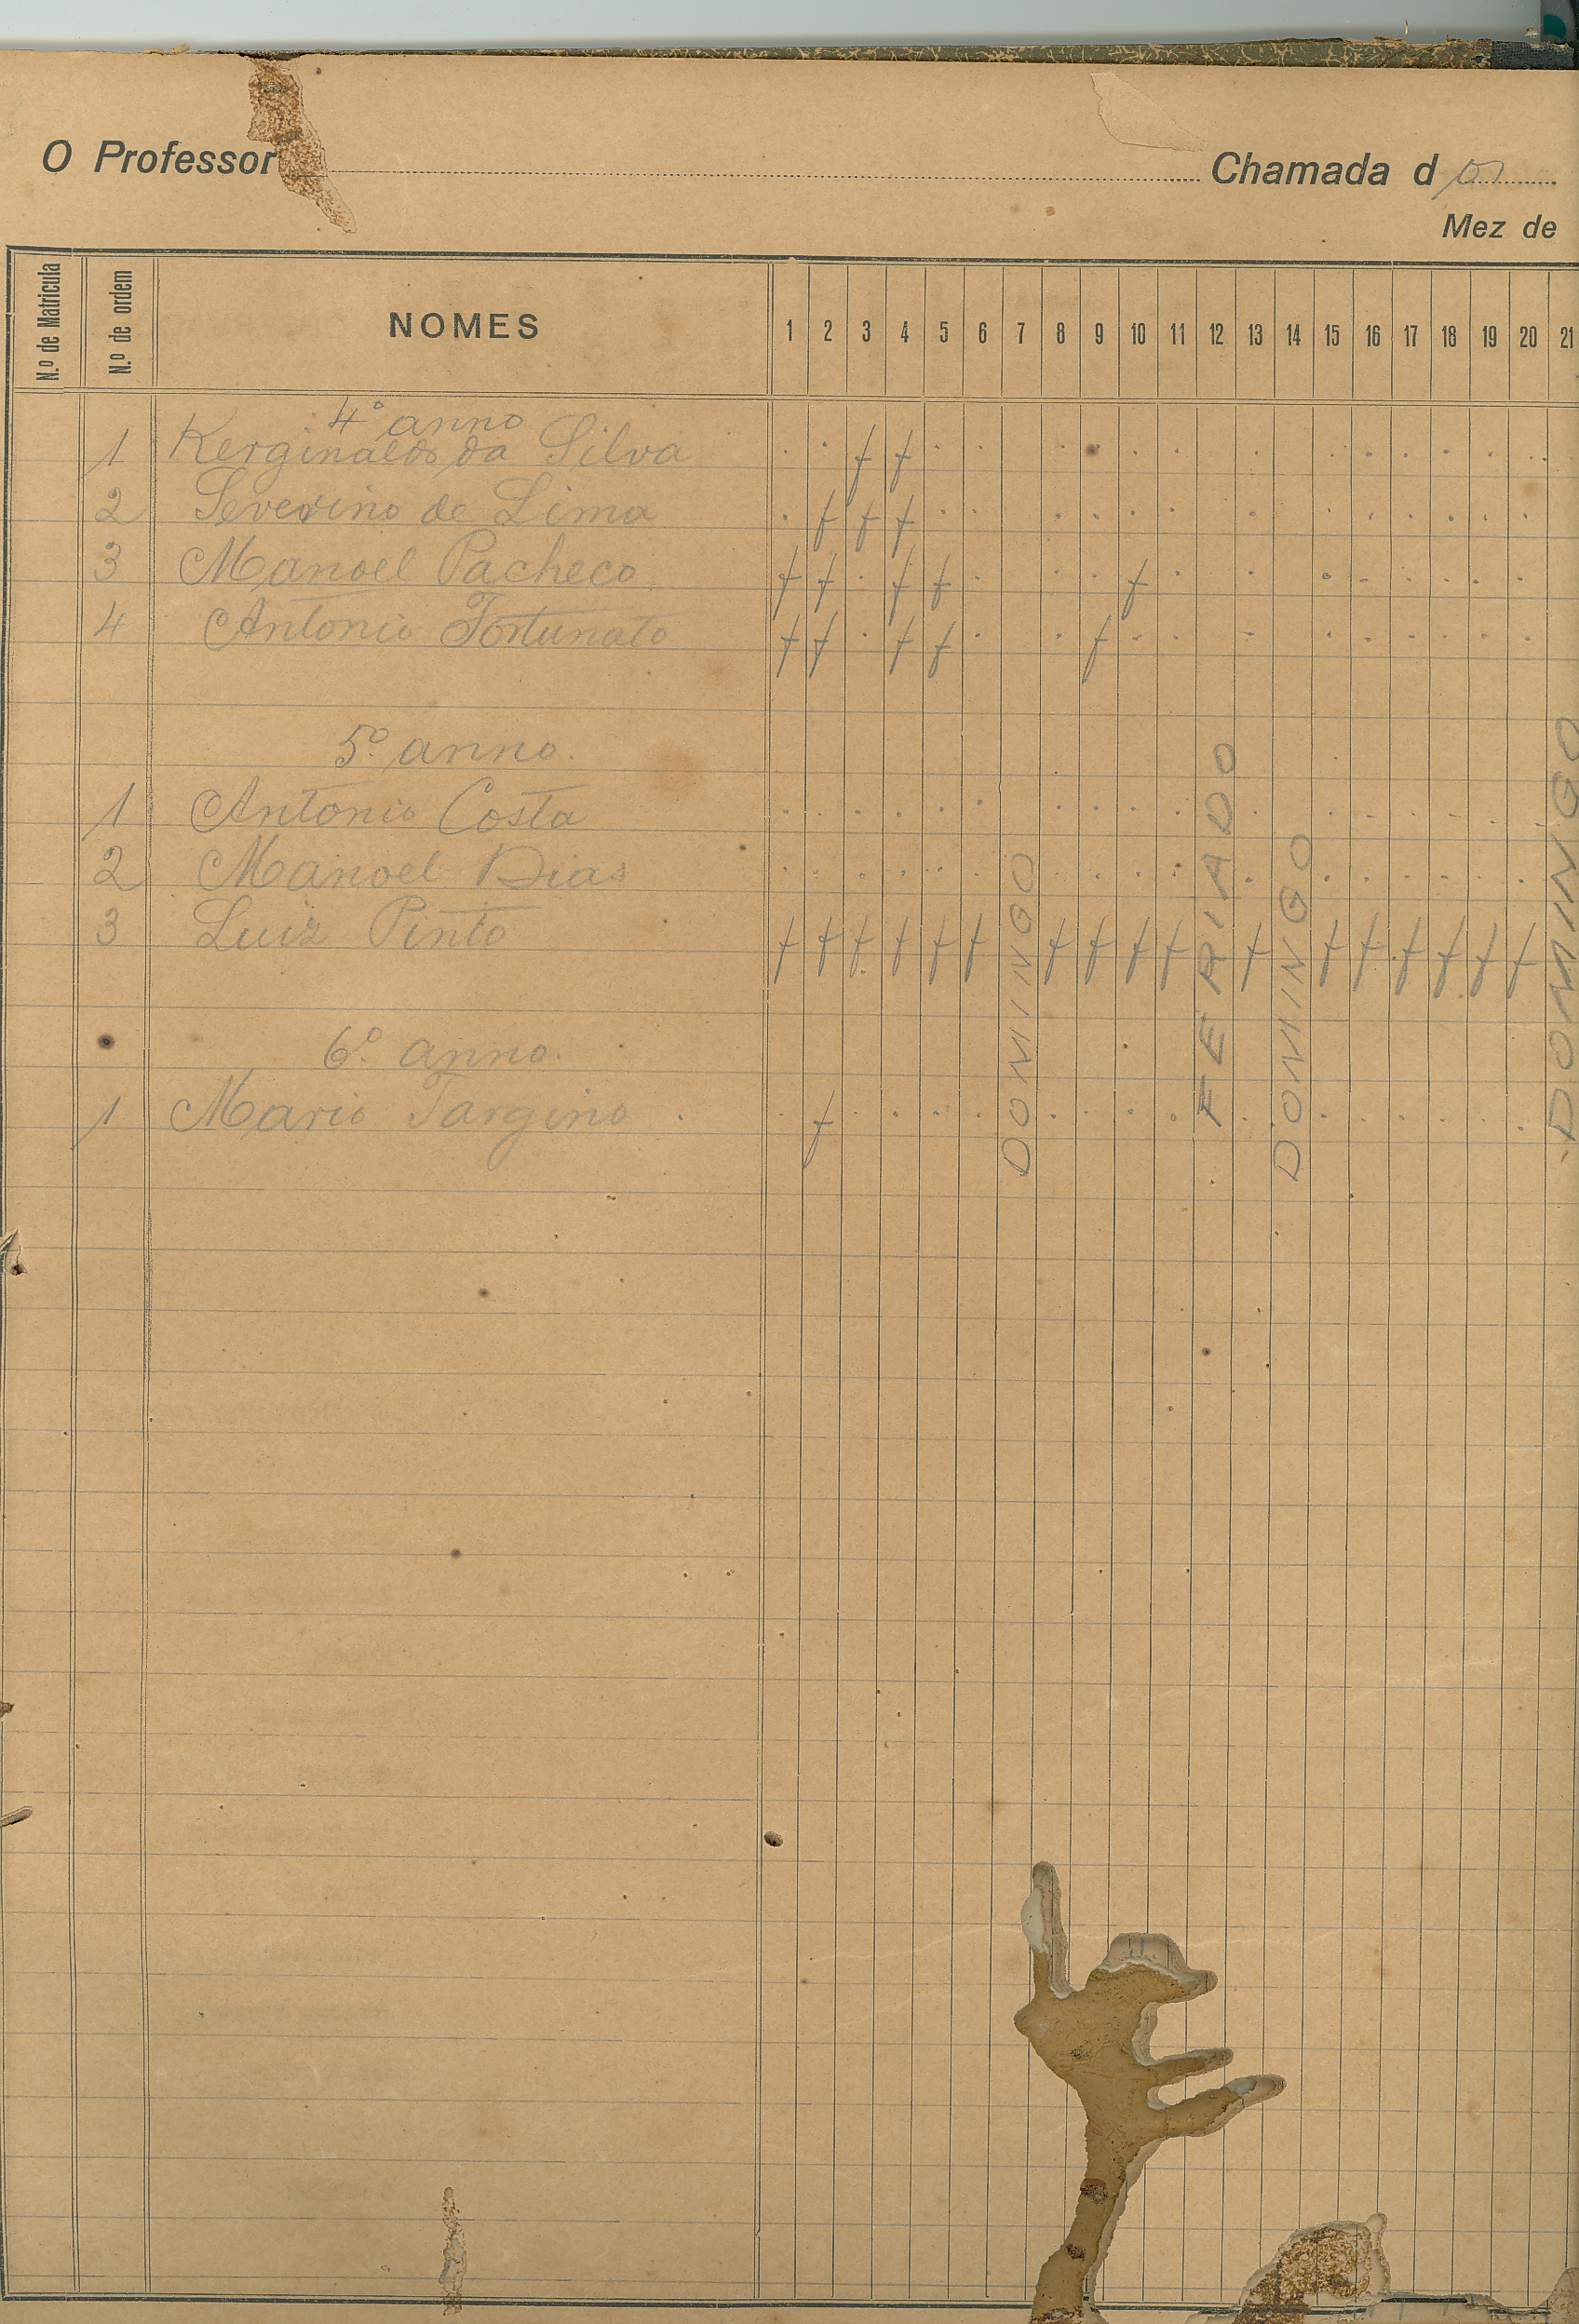 O Professor Chamada d
Mez de
N.º de Matricula N.º de ordem NOMES 1 2 3 4 5 6 7 8 9 10 11 12 13 14 15 16 17 18 19 20 21
4º anno
1 Kerginaldo da Silva . . f f . . . . . . . . . . . . .
2 Severino de Lima . f f f . . . . . . . . . . . . .
3 Manoel Pacheco f f . f f . . . f . . . . . . . .
4 Antonio Fortunato f f . f f . . f . . . . . . . . .
5º anno.
1 Antonio Costa . . . . . . . . . . . . . . . . .
2 Manoel Dias . . . . . . . . . . . . . . . . . .
3 Luiz Pinto f f f f f f f f f f f f f f f f f
6º anno.
1 Mario Targino . . f . . . . . . . . . . . . . . .
DOMINGO
FERIADO
DOMINGO
DOMINGO